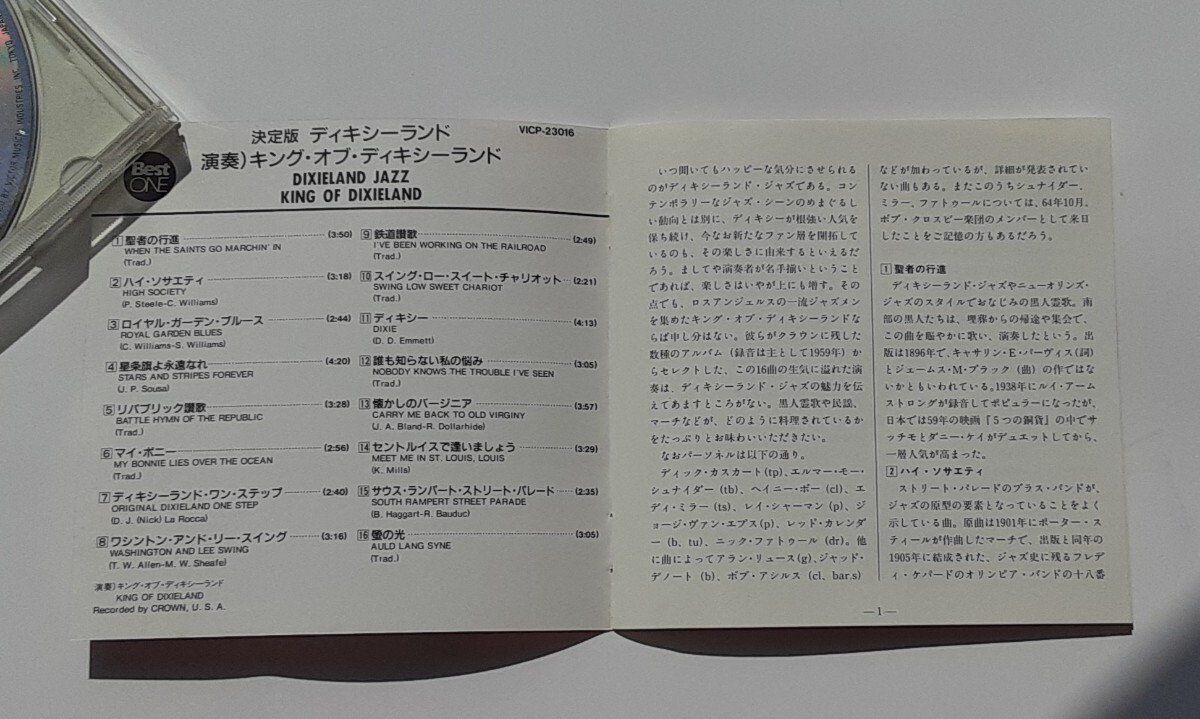 BY VICTOR MUSICAL INDUSTRIES, INC. TOKYO, JAPAN
Best ONE
決定版 ディキシーランド
VICP-23016
演奏)キング・オブ・ディキシーランド
DIXIELAND JAZZ
KING OF DIXIELAND
1 聖者の行進 (3:50)
WHEN THE SAINTS GO MARCHIN' IN
(Trad.)
2 ハイ・ソサエティ (3:18)
HIGH SOCIETY
(P. Steele-C. Williams)
3 ロイヤル・ガーデン・ブルース (2:44)
ROYAL GARDEN BLUES
(C. Williams-S. Williams)
4 星条旗よ永遠なれ (4:20)
STARS AND STRIPES FOREVER
(J. P. Sousa)
5 リパブリック讃歌 (3:28)
BATTLE HYMN OF THE REPUBLIC
(Trad.)
6 マイ・ボニー (2:56)
MY BONNIE LIES OVER THE OCEAN
(Trad.)
7 ディキシーランド・ワン・ステップ (2:40)
ORIGINAL DIXIELAND ONE STEP
(D. J. (Nick) La Rocca)
8 ワシントン・アンド・リー・スイング (3:16)
WASHINGTON AND LEE SWING
(T. W. Allen-M. W. Sheafe)
演奏)キング・オブ・ディキシーランド
KING OF DIXIELAND
Recorded by CROWN, U. S. A.
9 鉄道讃歌 (2:49)
I'VE BEEN WORKING ON THE RAILROAD
(Trad.)
10 スイング・ロー・スイート・チャリオット (2:21)
SWING LOW SWEET CHARIOT
(Trad.)
11 ディキシー (4:13)
DIXIE
(D. D. Emmett)
12 誰も知らない私の悩み (3:05)
NOBODY KNOWS THE TROUBLE I'VE SEEN
(Trad.)
13 懐かしのバージニア (3:57)
CARRY ME BACK TO OLD VIRGINY
(J. A. Bland-R. Dollarhide)
14 セントルイスで逢いましょう (3:29)
MEET ME IN ST. LOUIS, LOUIS
(K. Mills)
15 サウス・ランパート・ストリート・パレード (2:35)
SOUTH RAMPERT STREET PARADE
(B. Haggart-R. Bauduc)
16 螢の光 (3:05)
AULD LANG SYNE
(Trad.)
いつ聞いてもハッピーな気分にさせられる
のがディキシーランド・ジャズである。コン
テンポラリーなジャズ・シーンのめまぐるし
い動向とは別に、ディキシーが根強い人気を
保ち続け、今なお新たなファン層を開拓して
いるのも、その楽しさに由来するといえるだ
ろう。ましてや演奏者が名手揃いということ
であれば、楽しさはいやが上にも増す。その
点でも、ロスアンジェルスの一流ジャズメン
を集めたキング・オブ・ディキシーランドな
らば申し分はない。彼らがクラウンに残した
数種のアルバム（録音は主として1959年）か
らセレクトした、この16曲の生気に溢れた演
奏は、ディキシーランド・ジャズの魅力を伝
えてあますところがない。黒人霊歌や民謡、
マーチなどが、どのように料理されているか
をたっぷりとお味わいいただきたい。
なおパーソネルは以下の通り。
ディック・カスカート(tp)、エルマー・モー・
シュナイダー(tb)、ヘイニー・ボー(cl)、エ
ディ・ミラー(ts)、レイ・シャーマン(p)、ジ
ョージ・ヴァン・エプス(p)、レッド・カレンダ
ー(b、tu)、ニック・ファトゥール(dr)。他
に曲によってアラン・リュース(g)、ジャッド・
デノート(b)、ボブ・アシルス(cl、bar.s)
などが加わっているが、詳細が発表されてい
ない曲もある。またこのうちシュナイダー、
ミラー、ファトゥールについては、64年10月、
ボブ・クロスビー楽団のメンバーとして来日
したことをご記憶の方もあるだろう。
1 聖者の行進
ディキシーランド・ジャズやニューオリンズ・
ジャズのスタイルでおなじみの黒人霊歌。南
部の黒人たちは、埋葬からの帰途や集会で、
この曲を賑やかに歌い、演奏したという。出
版は1896年で、キャサリン・E・パーヴィス(詞)
とジェームス・M・ブラック（曲）の作ではな
いかともいわれている。1938年にルイ・アーム
ストロングが録音してポピュラーになったが、
日本では59年の映画『5つの銅貨』の中でサ
ッチモとダニー・ケイがデュエットしてから、
一層人気が高まった。
2 ハイ・ソサエティ
ストリート・パレードのブラス・バンドが、
ジャズの原型の要素となっていることをよく
示している曲。原曲は1901年にポーター・ス
ティールが作曲したマーチで、出版と同年の
1905年に結成された、ジャズ史に残るフレデ
ィ・ケパードのオリンピア・バンドの十八番
—1—